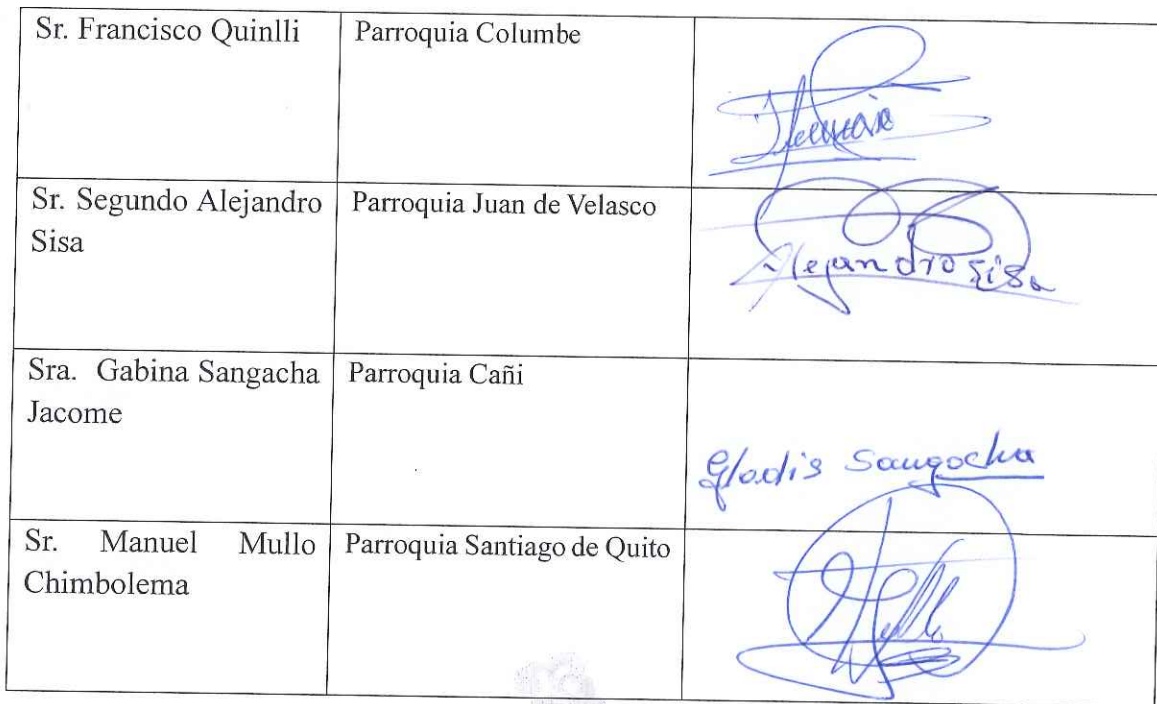 Sr. Francisco Quinlli
Parroquia Columbe
Sr. Segundo Alejandro
Sisa
Parroquia Juan de Velasco
Alejandro Sisa
Sra. Gabina Sangacha
Jacome
Parroquia Cañi
Gladis Sangacha
Sr. Manuel Mullo
Chimbolema
Parroquia Santiago de Quito